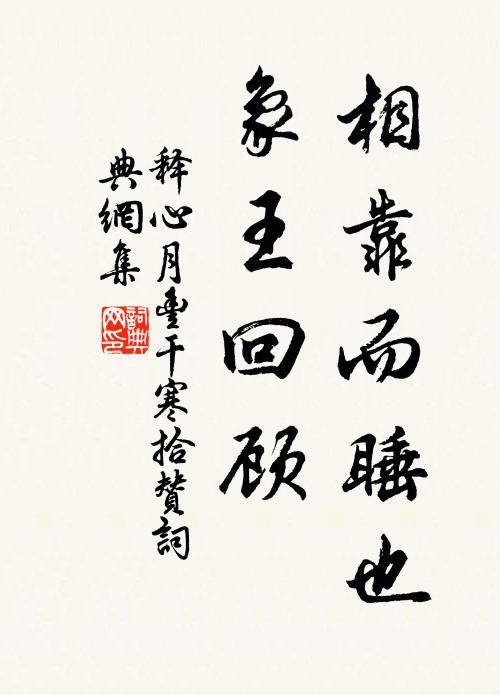 相靠而睡也
象王回顾
释心月豊干寒拾赞詞
典網集
詞典网印